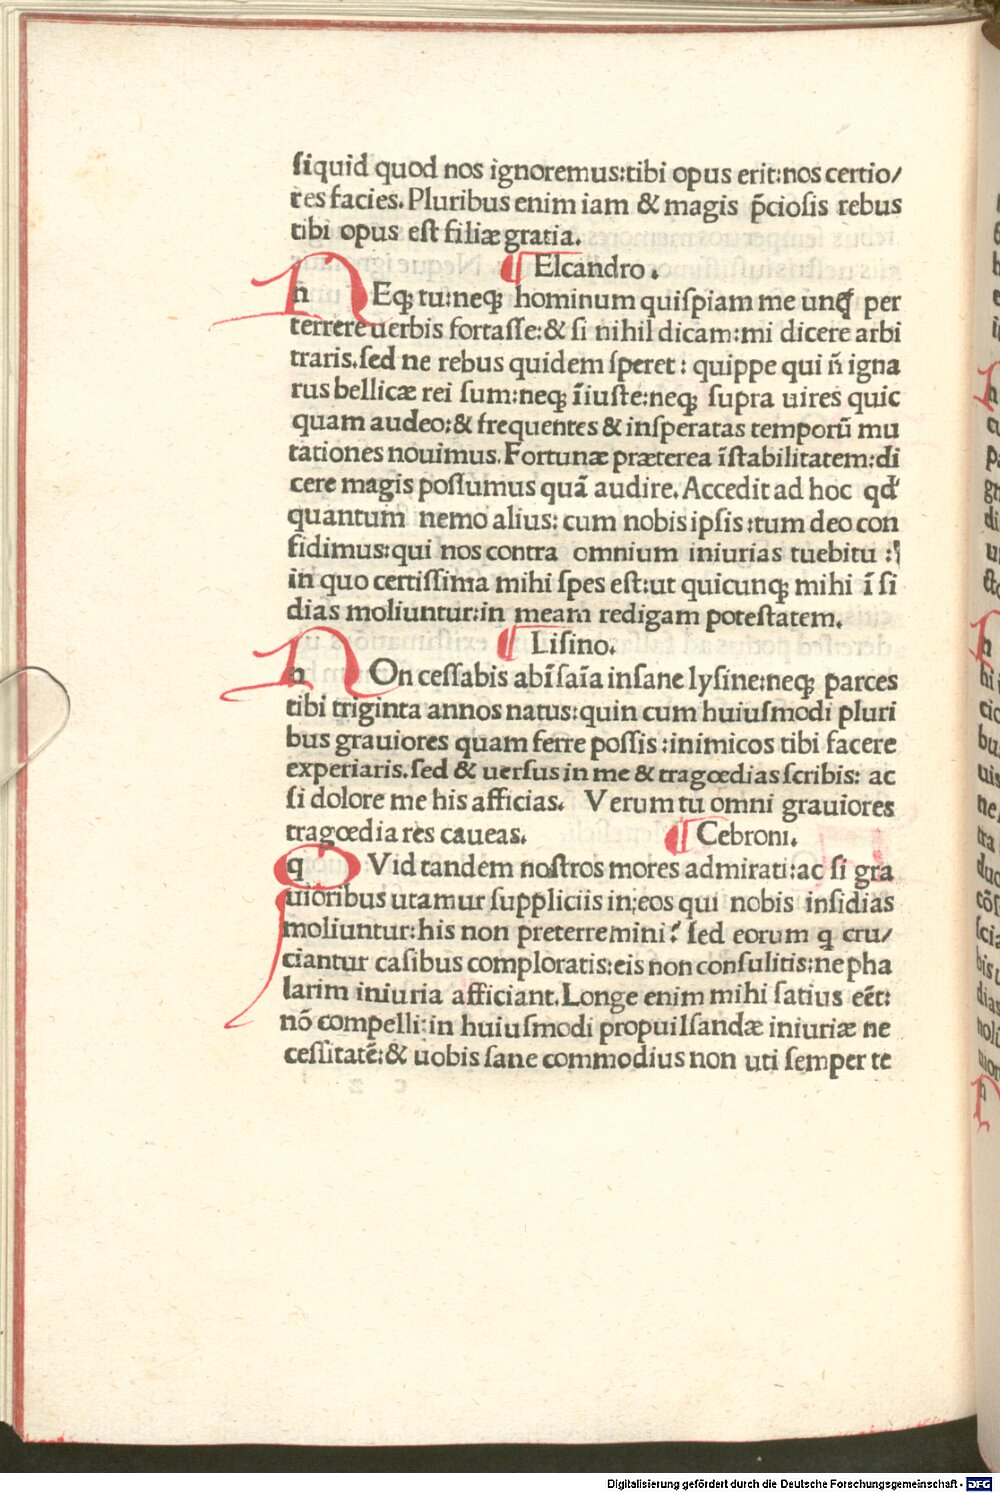 siquid quod nos ignoremus:tibi opus erit:nos certio/
res facies. Pluribus enim iam & magis p̄ciosis rebus
tibi opus est filiæ gratia.
¶ Elcandro.
NEqꝫ tu:neqꝫ hominum quispiam me unq̄ per
terrere uerbis fortasse:& si nihil dicam:mi dicere arbi
traris.sed ne rebus quidem speret: quippe qui ñ igna
rus bellicæ rei sum:neqꝫ ĩiuste:neqꝫ supra uires quic
quam audeo:& frequentes & insperatas temporũ mu
tationes nouimus. Fortunæ præterea ĩstabilitatem:di
cere magis possumus quã audire. Accedit ad hoc qd'
quantum nemo alius: cum nobis ipsis:tum deo con
fidimus:qui nos contra omnium iniurias tuebitu :
in quo certissima mihi spes est:ut quicunqꝫ mihi ĩ si
dias moliuntur:in meam redigam potestatem.
¶ Lisino.
NOn cessabis abĩsaĩa insane lysine:neqꝫ parces
tibi triginta annos natus:quin cum huiusmodi pluri
bus grauiores quam ferre possis:inimicos tibi facere
experiaris.sed & uersus in me & tragœdias scribis: ac
si dolore me his afficias. Verum tu omni grauiores
tragœdia res caueas. ¶ Cebroni.
qVid tandem nostros mores admirati:ac si gra
uioribus utamur suppliciis in;eos qui nobis insidias
moliuntur:his non preterremini? sed eorum q cru/
ciantur casibus comploratis:eis non consulitis:ne pha
larim iniuria afficiant. Longe enim mihi satius eẽt:
nõ compelli:in huiusmodi propuilsandæ iniuriæ ne
cessitatẽ:& uobis sane commodius non uti semper te
Digitalisierung gefördert durch die Deutsche Forschungsgemeinschaft - DFG